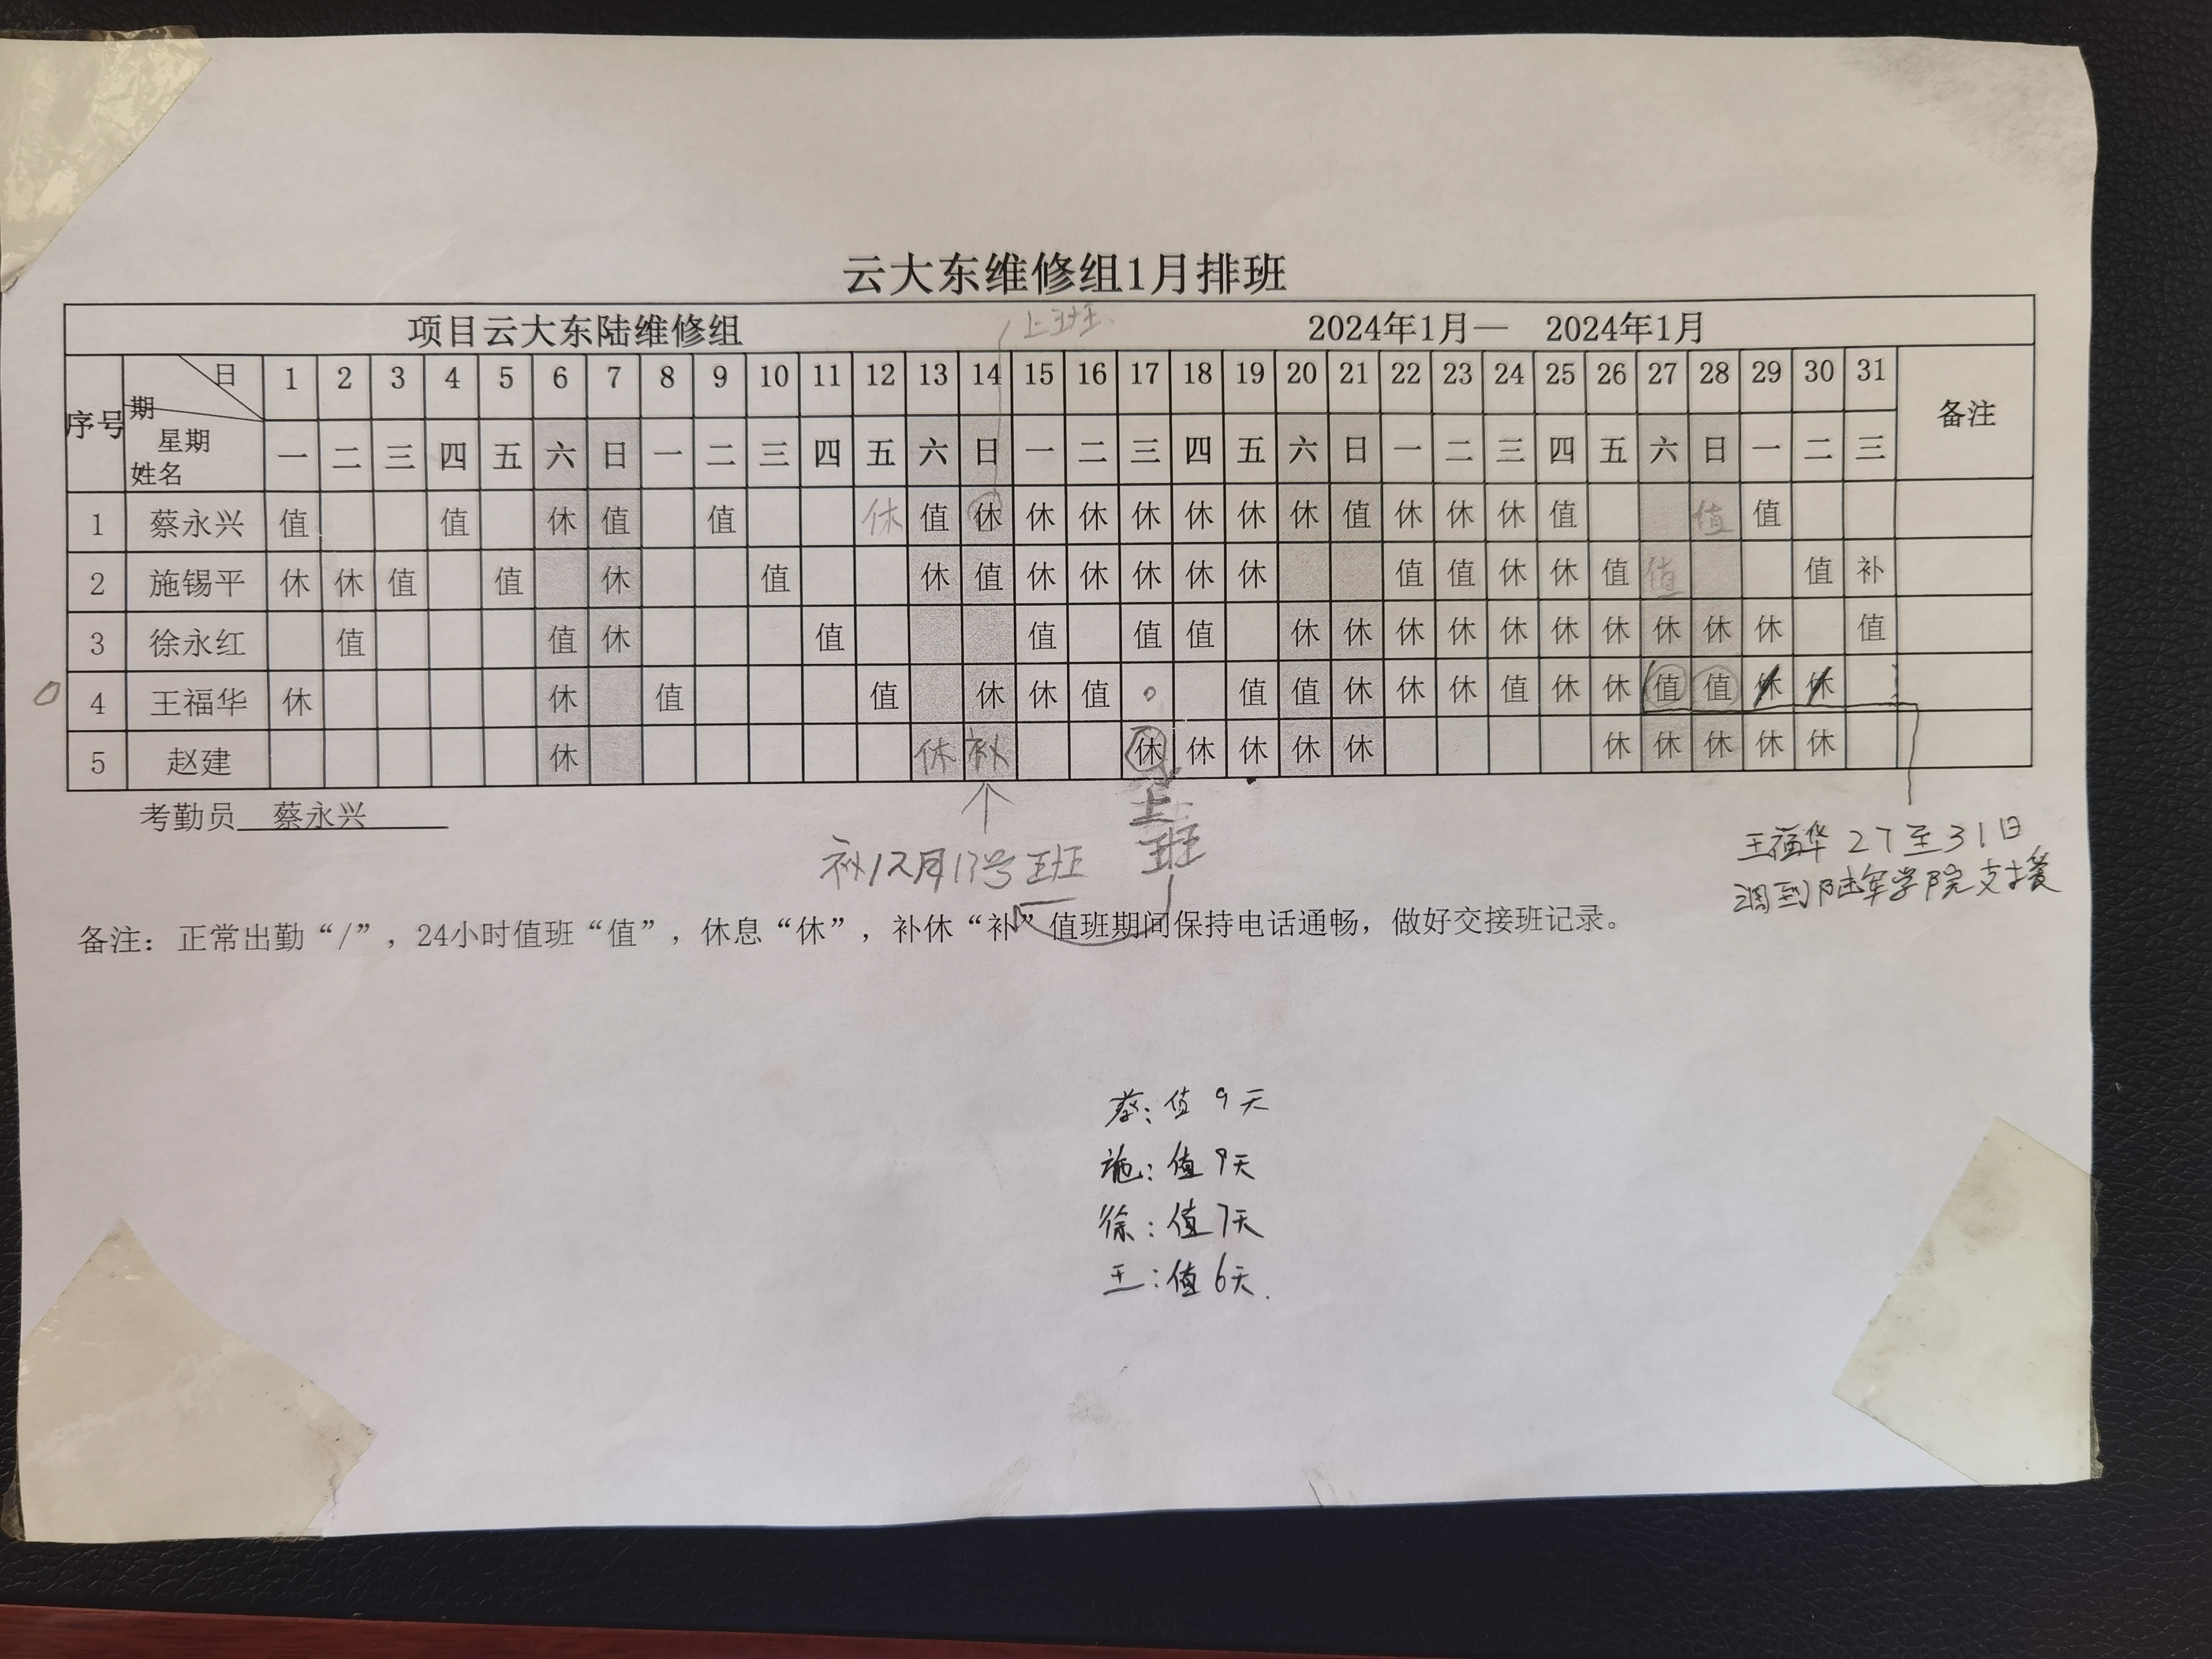 云大东维修组1月排班
项目云大东陆维修组 2024年1月— 2024年1月
上班
序号 日 期 星期 姓名 1 2 3 4 5 6 7 8 9 10 11 12 13 14 15 16 17 18 19 20 21 22 23 24 25 26 27 28 29 30 31 备注
一 二 三 四 五 六 日 一 二 三 四 五 六 日 一 二 三 四 五 六 日 一 二 三 四 五 六 日 一 二 三
1 蔡永兴 值 值 休 值 值 休 值 休 休 休 休 休 休 休 值 休 休 休 值 值 值
2 施锡平 休 休 值 值 休 值 休 值 休 休 休 休 休 值 值 休 休 值 值 值 补
3 徐永红 值 值 休 值 值 值 值 休 休 休 休 休 休 休 休 休 休 值
4 王福华 休 休 值 值 休 休 值 值 值 休 休 休 值 休 休 值 值 休 休
5 赵建 休 休 补 休 休 休 休 休 休 休 休 休 休
考勤员 蔡永兴
上
班
补12月17号班
王福华 27至31日
调到陆军学院支援
备注：正常出勤“/”，24小时值班“值”，休息“休”，补休“补”值班期间保持电话通畅，做好交接班记录。
蔡：值 9天
施：值 9天
徐：值 7天
王：值 6天.